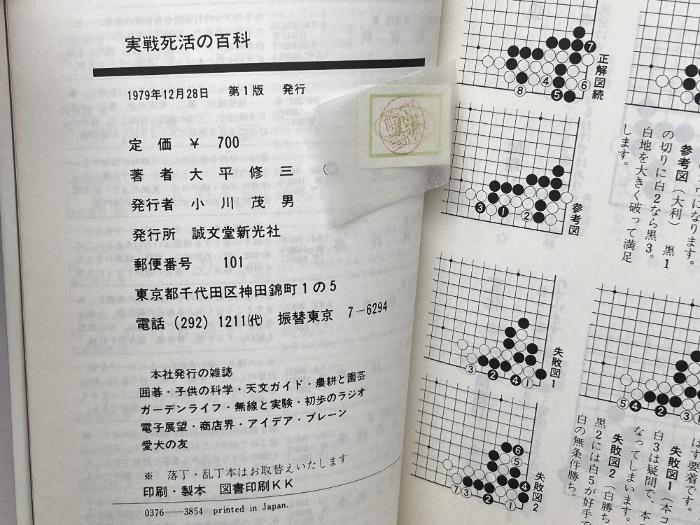 実戦死活の百科
1979年12月28日 第1版 発行
定価 ¥ 700
著者 大平修三
発行者 小川茂男
発行所 誠文堂新光社
郵便番号 101
東京都千代田区神田錦町1の5
電話 (292) 1211(代) 振替東京 7-6294
本社発行の雑誌
囲碁・子供の科学・天文ガイド・農耕と園芸
ガーデンライフ・無線と実験・初歩のラジオ
電子展望・商店界・アイデア・ブレーン
愛犬の友
※ 落丁・乱丁本はお取替えいたします
印刷・製本 図書印刷KK
0376—3854 printed in Japan.
正解図続
参考図
失敗図1
失敗図2
になります。
参考図(大利) 黒1
の切りに白2なら黒3。
白地を大きく破って満足
します。
はす要着です。
失敗図1(本コ
白3は疑問で、本
なってしまいます
失敗図2(白勝ち
黒2には白5が好手で
白の無条件勝ち。